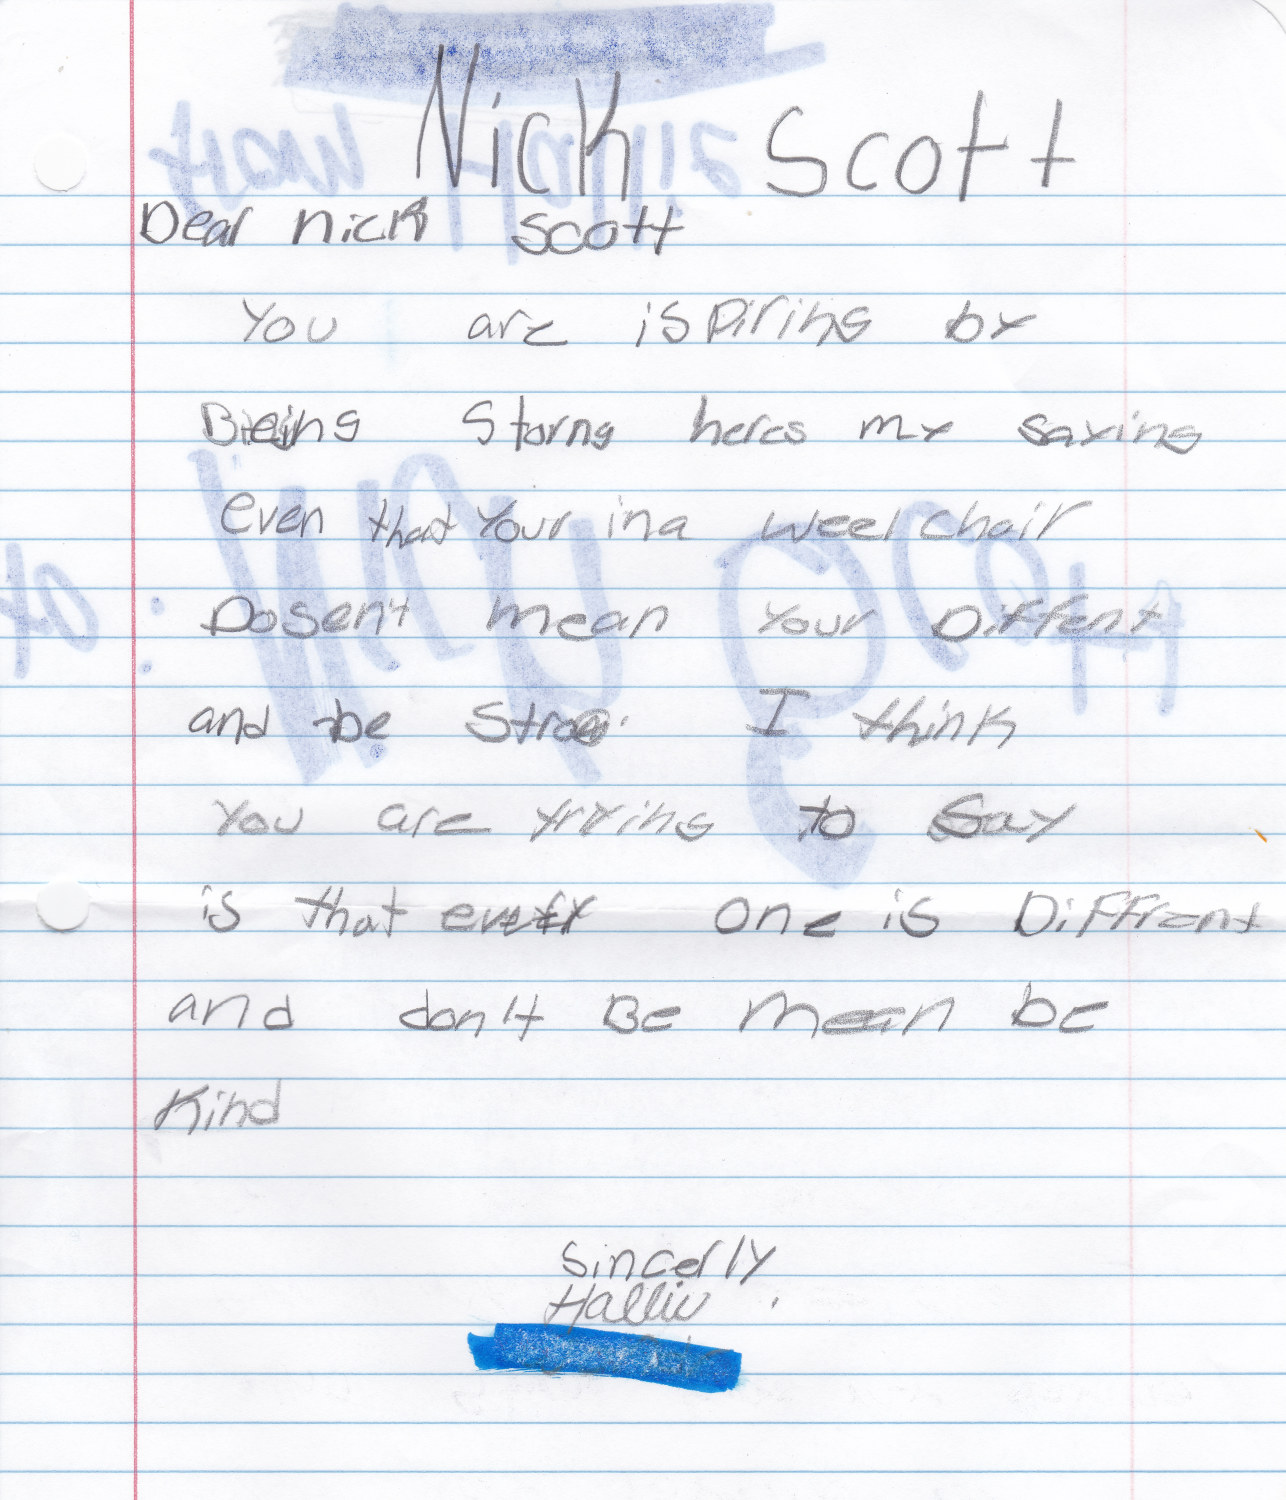 Nick Scott
Dear nick scott
You are ispiring by
Bieing Storng heres my saying
even that Your in a weel chair
Dosen't mean your Diffent
and be I think
You are trying to Say
is that every one is Diffrent
and don't Be mean be
Kind
Sincerly
Hallie